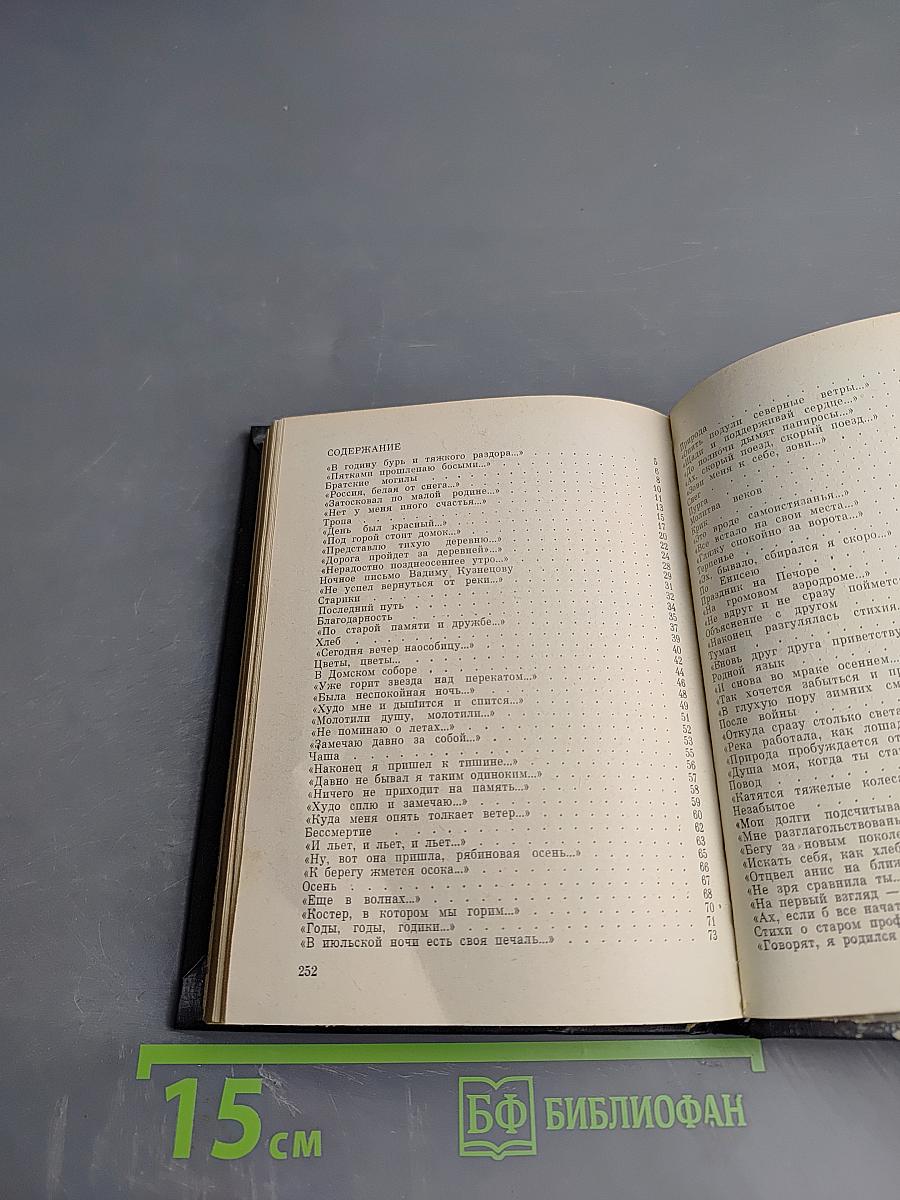 СОДЕРЖАНИЕ
«В годину бурь и тяжкого раздора...» 5
«Пятками прошлепаю босыми...» 6
Братские могилы 8
«Россия, белая от снега...» 10
«Затосковал по малой родине...» 11
«Нет у меня иного счастья...» 13
Тропа 15
«День был красный...» 17
«Под горой стоит домок...» 20
«Представлю тихую деревню...» 22
«Дорога пройдет за деревней»...» 24
«Нерадостно позднеосеннее утро...» 28
Ночное письмо Вадиму Кузнецову 29
«Не успел вернуться от реки...» 31
Старики 32
Последний путь 34
Благодарность 35
«По старой памяти и дружбе...» 37
Хлеб 39
«Сегодня вечер наособицу...» 40
Цветы, цветы... 42
В Домском соборе 44
«Уже горит звезда над перекатом...» 46
«Была неспокойная ночь...» 48
«Худо мне и дышится и спится...» 49
«Молотили душу, молотили...» 51
«Не поминаю о летах...» 52
«Замечаю давно за собой...» 53
Чаша 55
«Наконец я пришел к тишине...» 56
«Давно не бывал я таким одиноким...» 57
«Ничего не приходит на память...» 58
«Худо сплю и замечаю...» 59
«Куда меня опять толкает ветер...» 60
Бессмертие 62
«И льет, и льет, и льет...» 63
«Ну, вот она пришла, рябиновая осень...» 65
«К берегу жмется осока...» 66
Осень 67
«Еще в волнах...» 68
«Костер, в котором мы горим...» 70
«Годы, годы, годики...» 71
«В июльской ночи есть своя печаль...» 73
252
Природа
«Опять подули северные ветры...»
и поддерживай сердце...»
«До полночи дымят папиросы...»
«Ах, скорый поезд, скорый поезд...»
«Зови меня к себе, зови...»
Снег
Пурга
Молитва веков
Крик
«Это вроде самоистязанья...»
«Все встало на свои места...»
«Гляжу спокойно за ворота...»
Терпенье
«Эх, бывало, сбирался я скоро...»
По Енисею
Праздник на Печоре
«На громовом аэродроме...»
«Не вдруг и не сразу поймется
Объяснение с другом
«Наконец разгулялась стихия.
Туман
«Вновь друг друга приветству
Родной язык
«И снова во мраке осеннем...
«Так хочется забыться и пр
«В глухую пору зимних см
После войны
«Откуда сразу столько света
«Река работала, как лошад
«Природа пробуждается от
«Душа моя, когда ты ста
Повод
«Катятся тяжелые колеса
Незабытое
«Мои долги подсчитыва
«Мне разглагольствовань
«Бегу за новым поколе
«Искать себя, как хлеб
«Отцвел анис на ближ
«Не зря сравнила ты...
«На первый взгляд —
«Ах, если б все начат
Стихи о старом проф
«Говорят, я родился
15 см
БФ БИБЛИОФАН